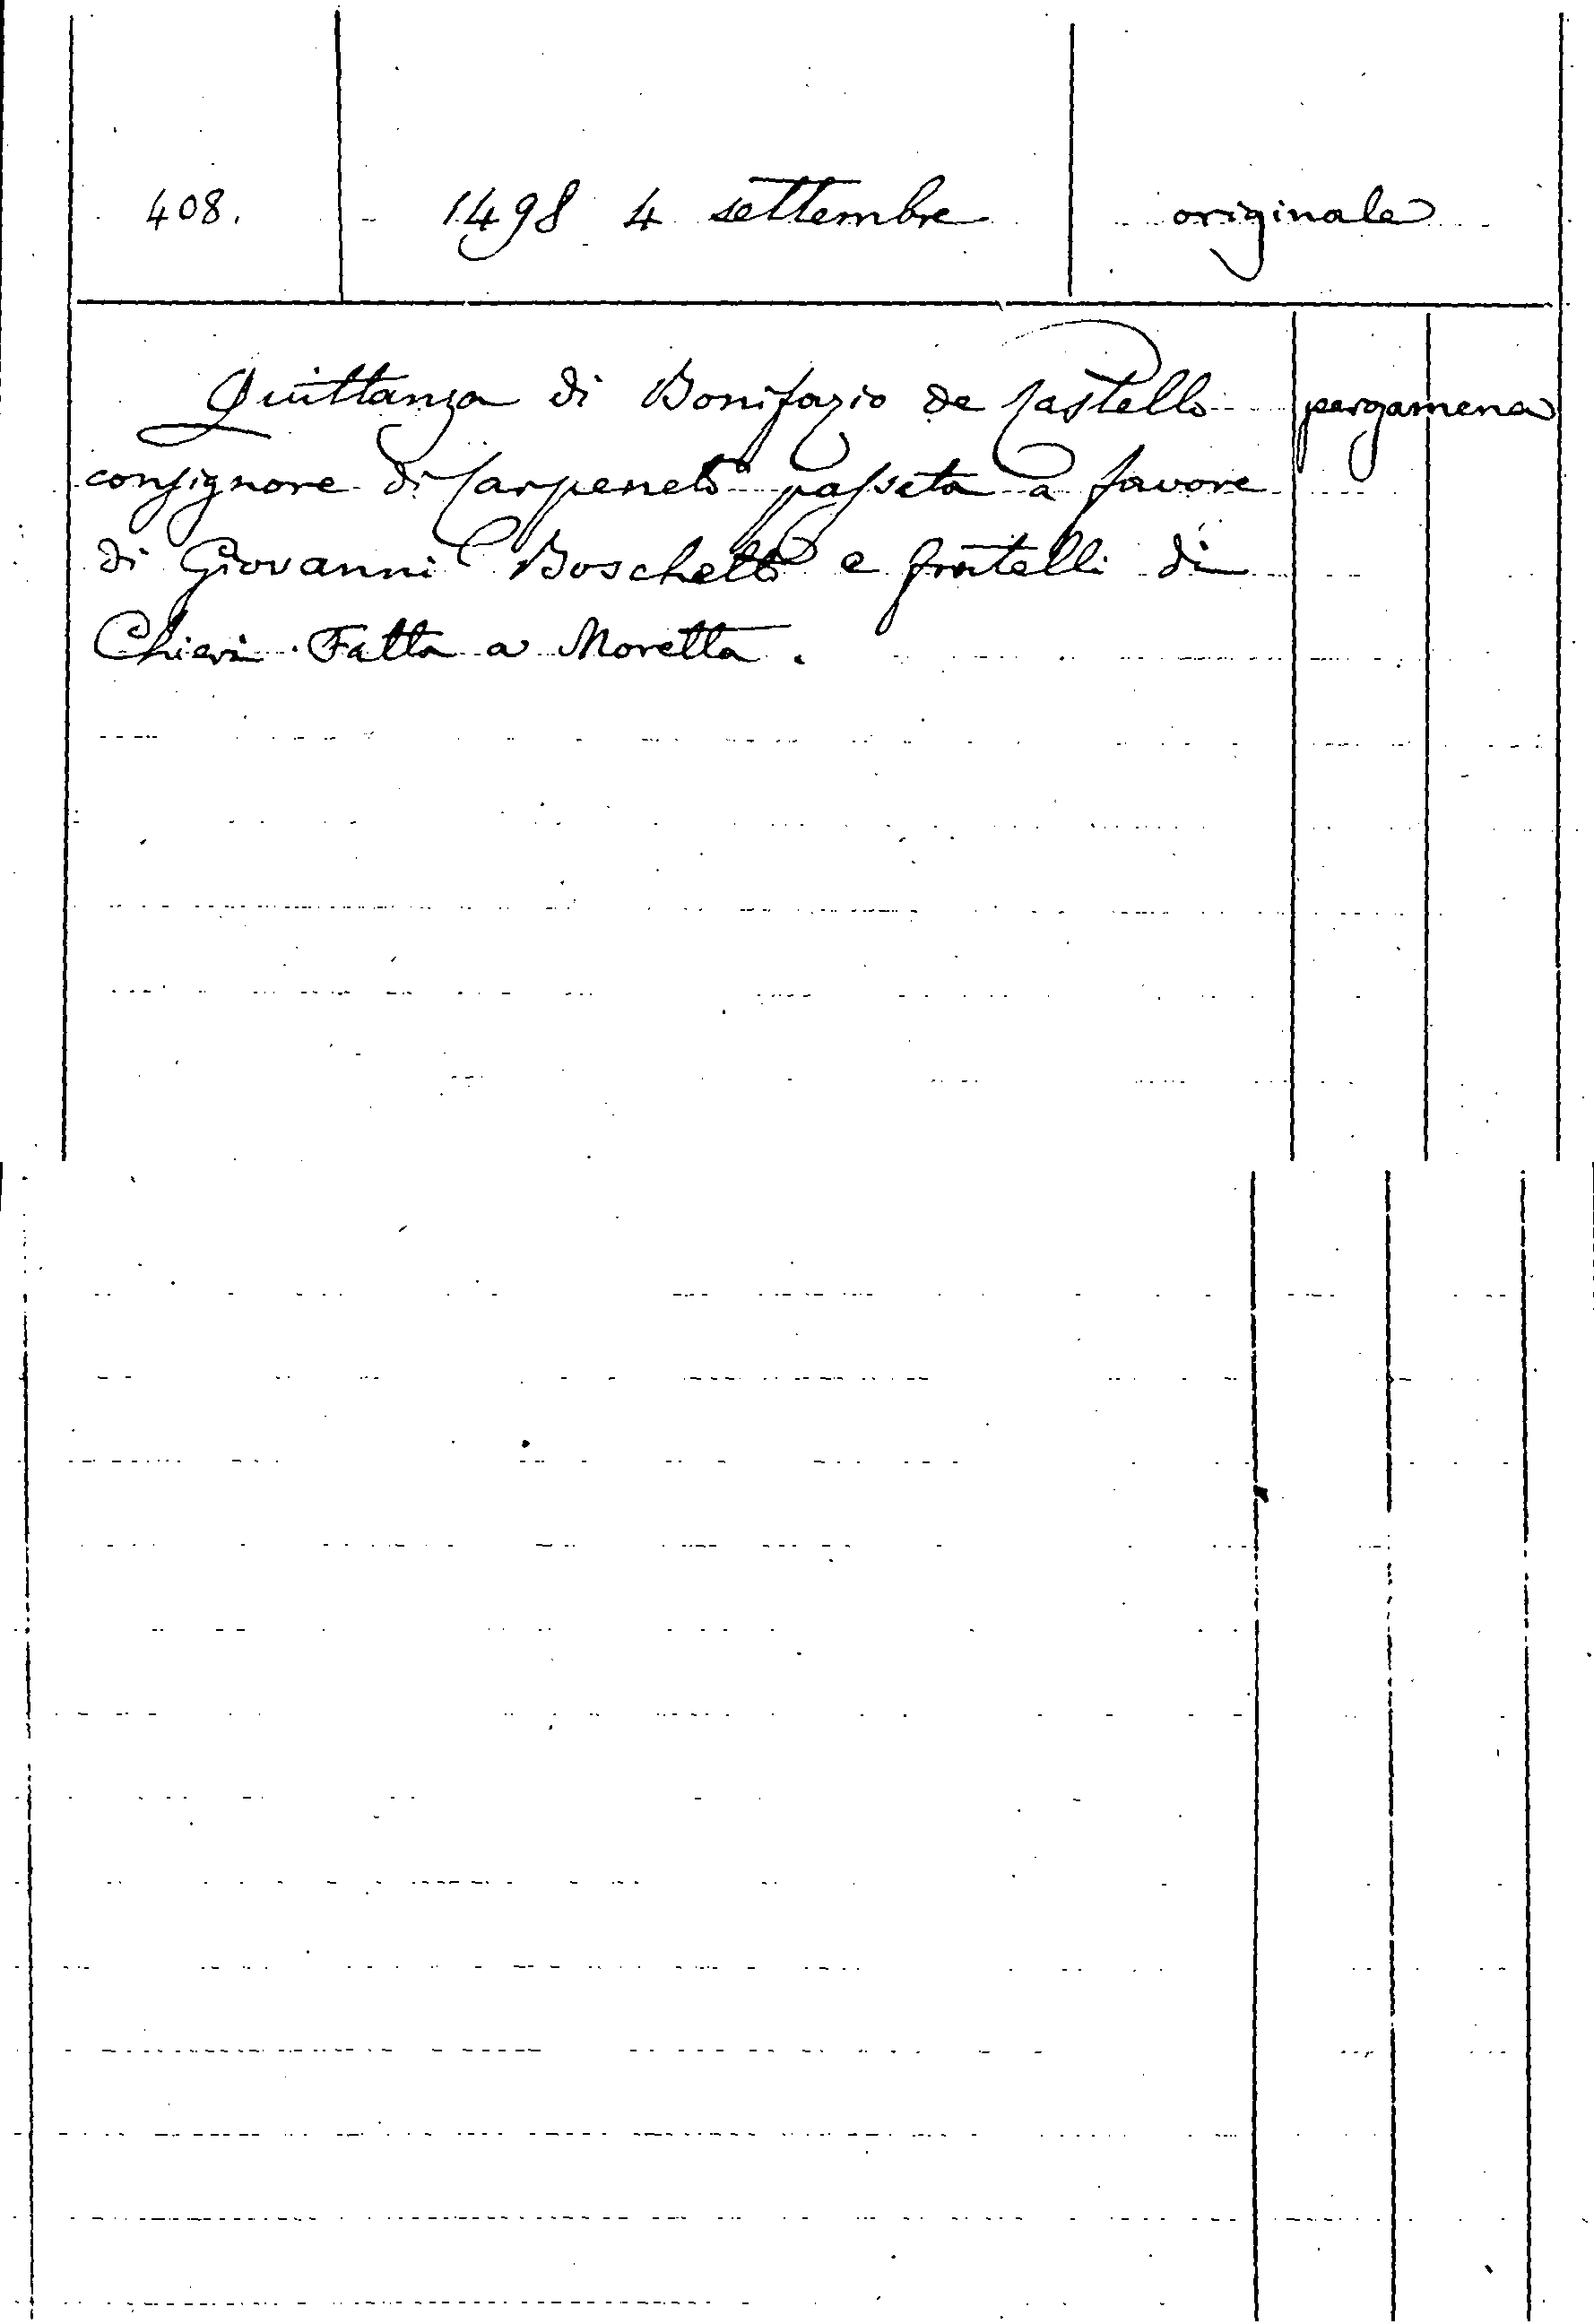 408. 1498 4 settembre originale
Quittanza di Bonifazio de Castello pergamena
consignore di Carpeneto passata a favore
di Giovanni Boschetto e fratelli di
Chieri. Fatta a Moretta.